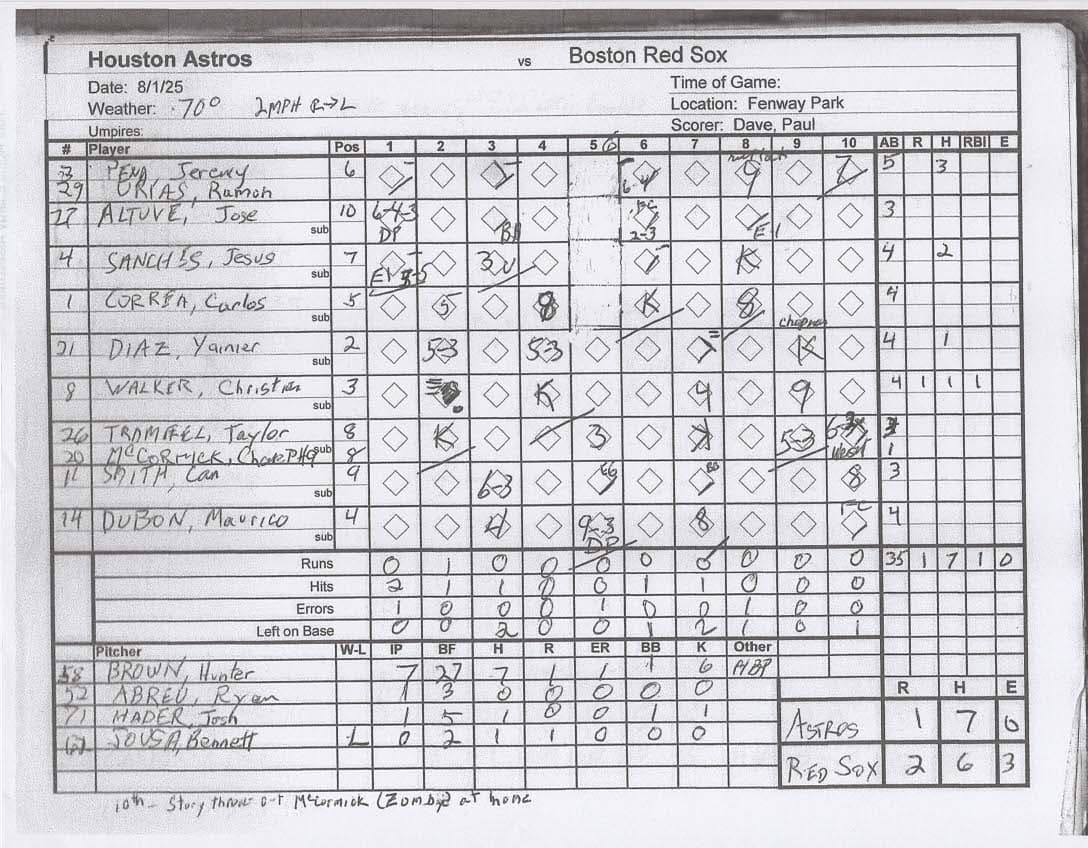 Houston Astros vs Boston Red Sox
Date: 8/1/25 Time of Game:
Weather: 70° 2MPH R→L Location: Fenway Park
Umpires: Scorer: Dave, Paul
# Player Pos 1 2 3 4 5 6 6 7 8 9 10 AB R H RBI E
3 PENA, Jeremy 6 6-4 9 7 5 3
29 URIAS, Ramon
27 ALTUVE, Jose 10 6-4-3 FC 3
sub DP BB 2-3 E-1
4 SANCHES, Jesus 7 3U K 4 2
sub E1 8-5
1 CORREA, Carlos 5 5 8 K 8 4
sub chapman
21 DIAZ, Yainier 2 5-3 5-3 K 4 1
sub
8 WALKER, Christian 3 K 4 9 4 1 1 1
sub
26 TRAMMEL, Taylor 8 K 3 K 5-3 3
20 McCORMICK, Chase PH9 sub 8 1
SMITH, Cam 9 6-3 E6 BB 8 3
sub
14 DUBON, Maurico 4 4 9-3 8 FC 4
sub DP
Runs 0 1 0 0 0 0 0 0 0 0 35 1 7 1 0
Hits 2 1 1 0 0 1 1 0 0 0
Errors 1 0 0 0 1 0 0 1 0 0
Left on Base 0 0 2 0 0 1 2 1 0 1
Pitcher W-L IP BF H R ER BB K Other
58 BROWN, Hunter 7 27 7 1 1 1 6 HBP
52 ABREU, Ryan 1 3 0 0 0 0 0 R H E
71 HADER, Josh 1 5 1 0 0 1 1 ASTROS 1 7 0
62 SOUSA, Bennett L 0 2 1 1 0 0 0 RED SOX 2 6 3
10th - Story throws out McCormick (Zombie) at home